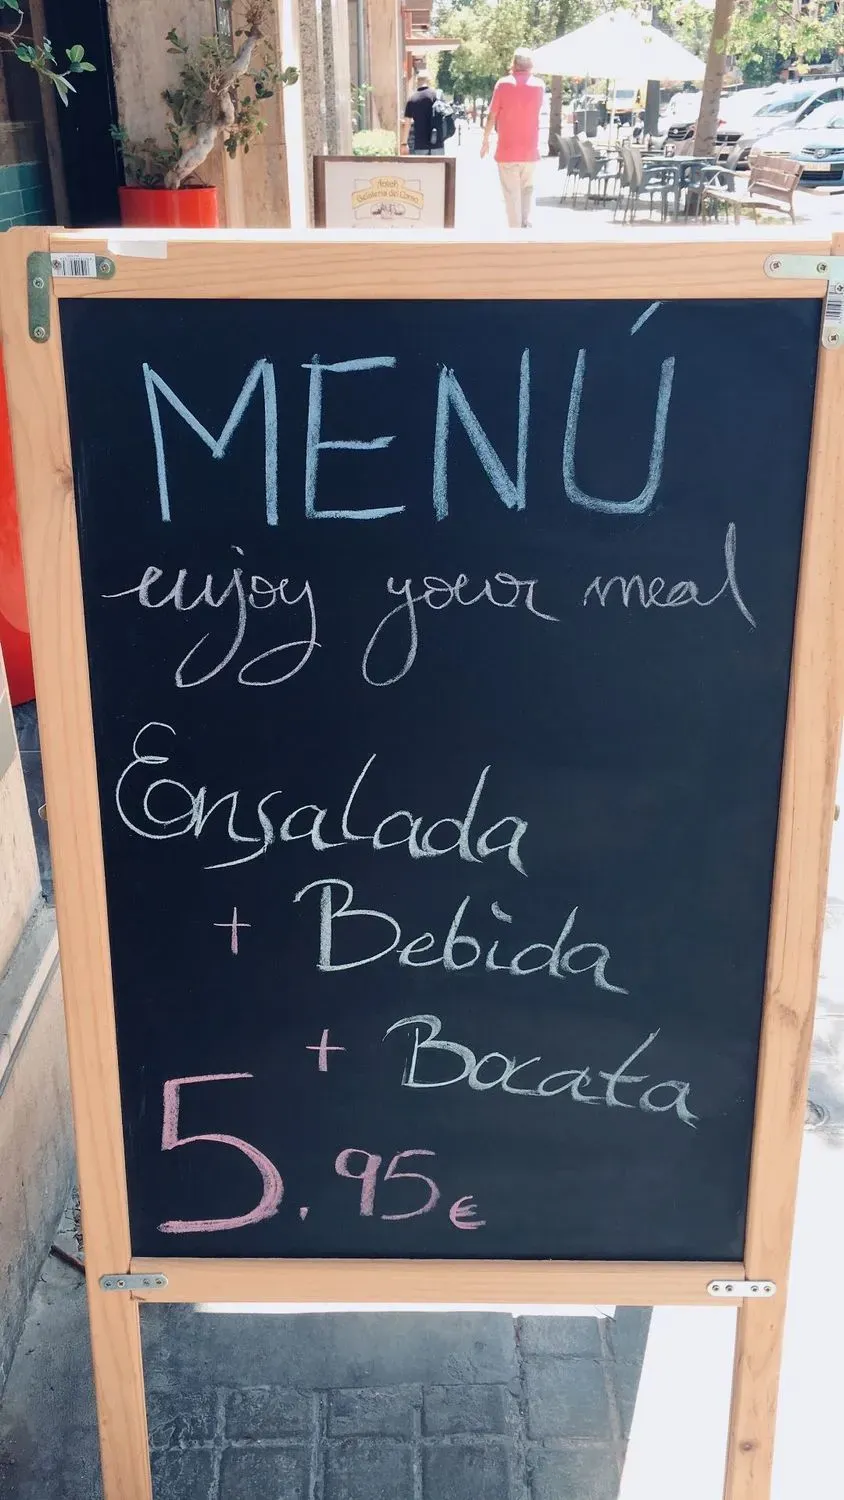 MENÚ
enjoy your meal
Ensalada
+ Bebida
+ Bocata
5.95€